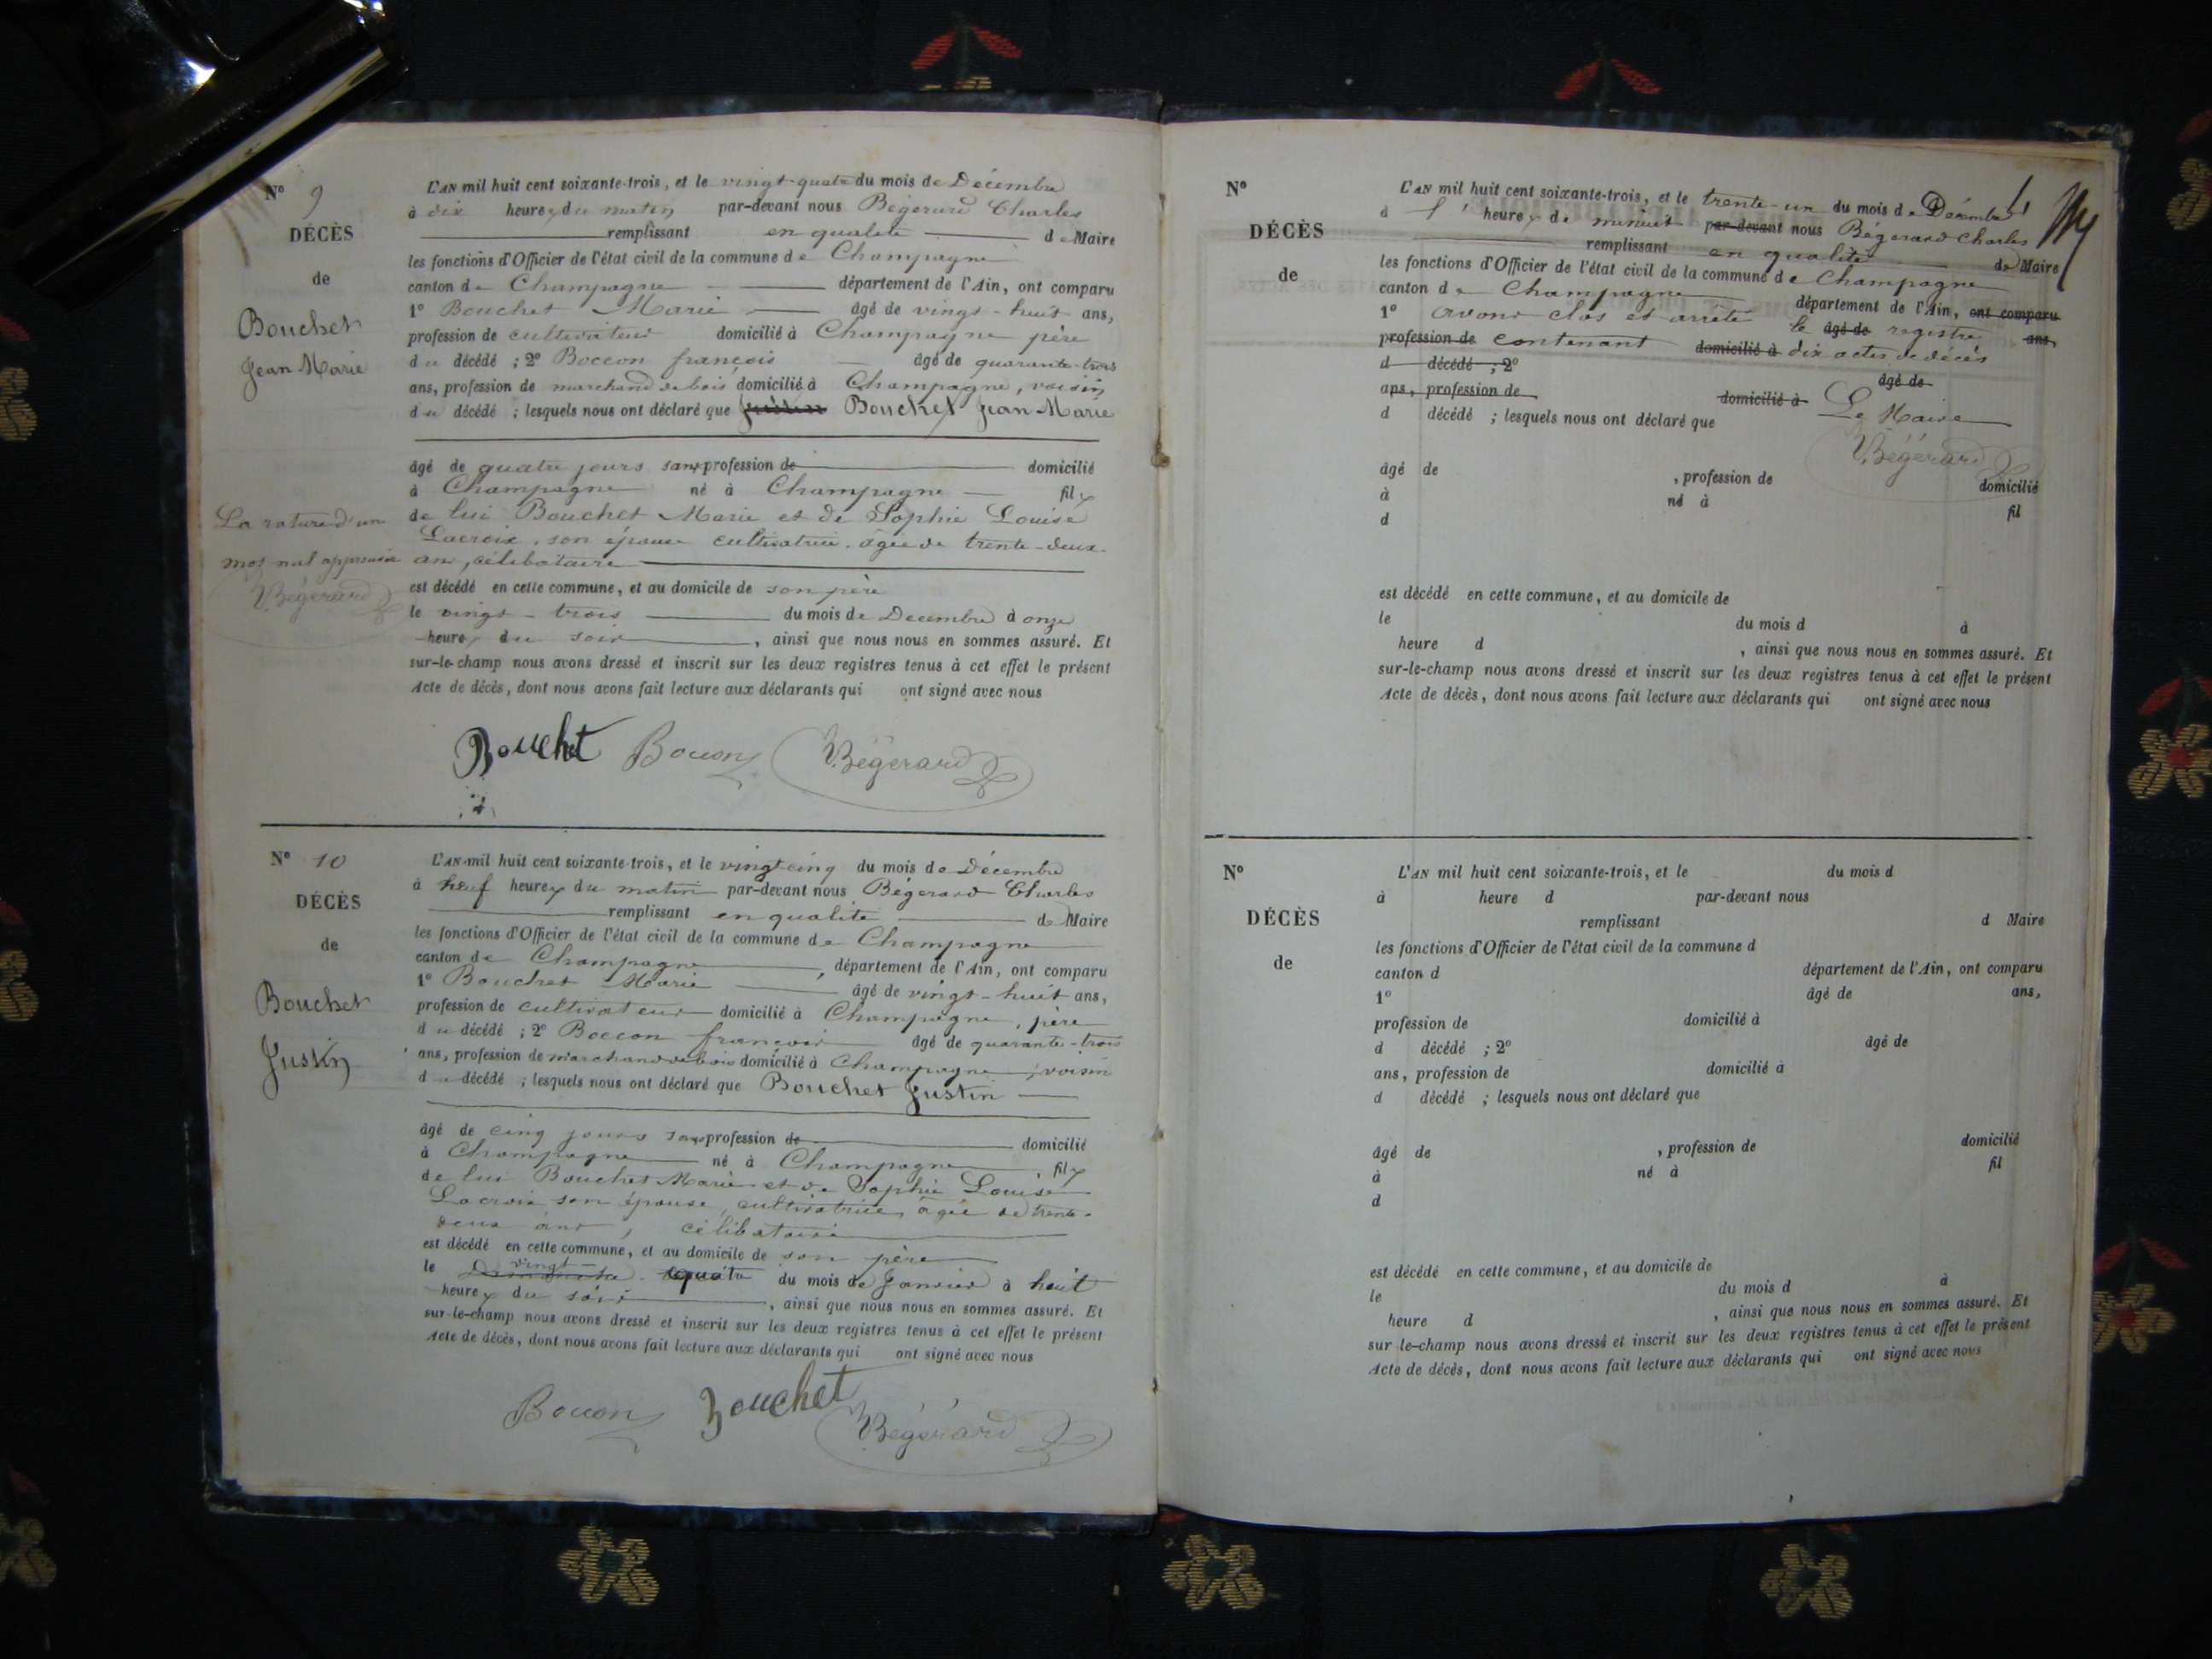 N° 9
DÉCÈS
de
Bouchet
Jean Marie
La rature d'un
mot nul approuvée
Bégerard
L'AN mil huit cent soixante-trois, et le vingt-quatre du mois de Décembre
à dix heures du matin par-devant nous Bégerard Charles
remplissant en qualité de Maire
les fonctions d'Officier de l'état civil de la commune de Champagne
canton de Champagne département de l'Ain, ont comparu
1° Bouchet Marie âgé de vingt-huit ans,
profession de cultivateur domicilié à Champagne père
du décédé ; 2° Boccon françois âgé de quarante-trois
ans, profession de marchand de bois domicilié à Champagne, voisin
du décédé ; lesquels nous ont déclaré que Justin Bouchet Jean Marie
âgé de quatre jours sans profession de domicilié
à Champagne né à Champagne fils
de lui Bouchet Marie et de Sophie Louise
Lacroix, son épouse cultivatrice, âgée de trente-deux
ans, célibataire
est décédé en cette commune, et au domicile de son père
le vingt-trois du mois de Decembre à onze
heures du soir, ainsi que nous nous en sommes assuré. Et
sur-le-champ nous avons dressé et inscrit sur les deux registres tenus à cet effet le présent
Acte de décès, dont nous avons fait lecture aux déclarants qui ont signé avec nous
Bouchet Boccon Bégerard
N° 10
DÉCÈS
de
Bouchet
Justin
L'AN mil huit cent soixante-trois, et le vingt cinq du mois de Décembre
à neuf heures du matin par-devant nous Bégerard Charles
remplissant en qualité de Maire
les fonctions d'Officier de l'état civil de la commune de Champagne
canton de Champagne, département de l'Ain, ont comparu
1° Bouchet Marie âgé de vingt-huit ans,
profession de cultivateur domicilié à Champagne, père
du décédé ; 2° Boccon françois âgé de quarante-trois
ans, profession de marchand de bois domicilié à Champagne, voisin
du décédé ; lesquels nous ont déclaré que Bouchet Justin
âgé de cinq jours sans profession de domicilié
à Champagne né à Champagne, fils
de lui Bouchet Marie et de Sophie Louise
Lacroix son épouse, cultivatrice, âgée de trente-
deux ans, célibataire
est décédé en cette commune, et au domicile de son père
le vingt-quatre du mois de Janvier à huit
heures du soir, ainsi que nous nous en sommes assuré. Et
sur-le-champ nous avons dressé et inscrit sur les deux registres tenus à cet effet le présent
Acte de décès, dont nous avons fait lecture aux déclarants qui ont signé avec nous
Boccon Bouchet Bégerard
N°
DÉCÈS
de
L'AN mil huit cent soixante-trois, et le trente-un du mois de Décembre
à l' heure de minuit par-devant nous Bégerard Charles
remplissant en qualité de Maire
les fonctions d'Officier de l'état civil de la commune de Champagne
canton de Champagne département de l'Ain, ont comparu
1° avons clos et arrêté le âgé de registre ans,
profession de contenant domicilié à dix actes de décès
d décédé ; 2° âgé de
ans, profession de domicilié à Le Maire
d décédé ; lesquels nous ont déclaré que
Bégerard
âgé de , profession de domicilié
à né à fil
d
est décédé en cette commune, et au domicile de
le du mois d à
heure d , ainsi que nous nous en sommes assuré. Et
sur-le-champ nous avons dressé et inscrit sur les deux registres tenus à cet effet le présent
Acte de décès, dont nous avons fait lecture aux déclarants qui ont signé avec nous
N°
DÉCÈS
de
L'AN mil huit cent soixante-trois, et le du mois d
à heure d par-devant nous
remplissant d Maire
les fonctions d'Officier de l'état civil de la commune d
canton d département de l'Ain, ont comparu
1° âgé de ans,
profession de domicilié à
d décédé ; 2° âgé de
ans, profession de domicilié à
d décédé ; lesquels nous ont déclaré que
âgé de , profession de domicilié
à né à fil
d
est décédé en cette commune, et au domicile de
le du mois d à
heure d , ainsi que nous nous en sommes assuré. Et
sur-le-champ nous avons dressé et inscrit sur les deux registres tenus à cet effet le présent
Acte de décès, dont nous avons fait lecture aux déclarants qui ont signé avec nous